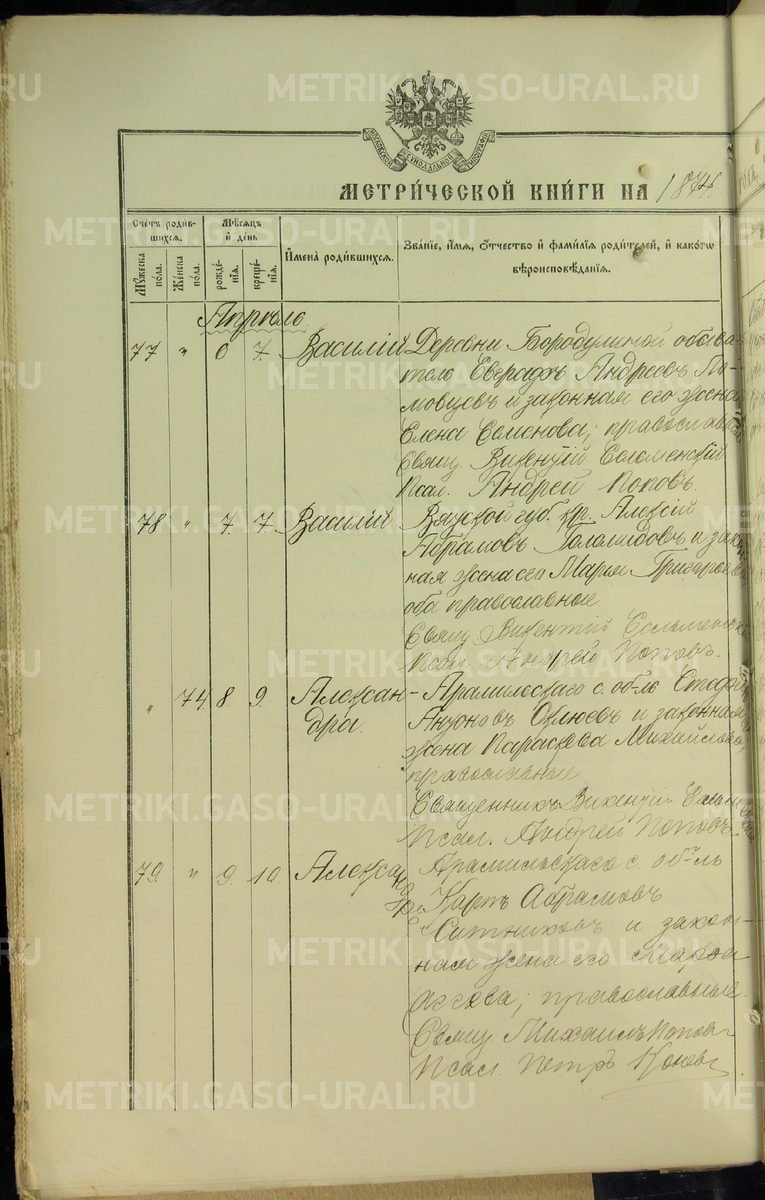 METRIKI.GASO-URAL.RU
МОСКОВСКОЙ СѴНОДАЛЬНОЙ ТИПОГРАФІИ
МЕТРИ́ЧЕСКОЙ КНИ́ГИ НА 1874.
Сче́тъ роди́в-
шихся.
Му́жеска по́ла.
Же́нска по́ла.
Мѣ́сяцъ
и҆ де́нь
рожде́нїя.
креще́нїя.
И҆мена̀ роди́вшихся.
Зва́нїе, и҆́мѧ, о҆́тчество и҆ фами́лїѧ роди́телей, и҆ како́гѡ
вѣроисповѣ́данїѧ.
Апрѣль.
77 " 6 7. Василій Деревни Бородулиной обыва-
тель Андреевъ
и законная его жена
Елена Семенова; православные
Свящ. Викентій
Псал. Андрей Поповъ.
78 " 7. 7. Василій Вятской губ. кр. Алексій
Абрамовъ и закон-
ная жена его Марія
оба православные
Свящ. Викентій
Псал. Андрей Поповъ.
" 74 8. 9. Алексан- Арамильскаго с. об-ль
дра. и законная
жена Параскева Михайлова
православные
Священникъ Викентій
Псал. Андрей Поповъ.
79. " 9. 10. Александръ Арамильскаго с. об-ль
Карпъ Абрамовъ
Ситниковъ и закон-
ная жена его Марѳа
православные.
Свящ. Михаилъ Поповъ
Псал. Петръ